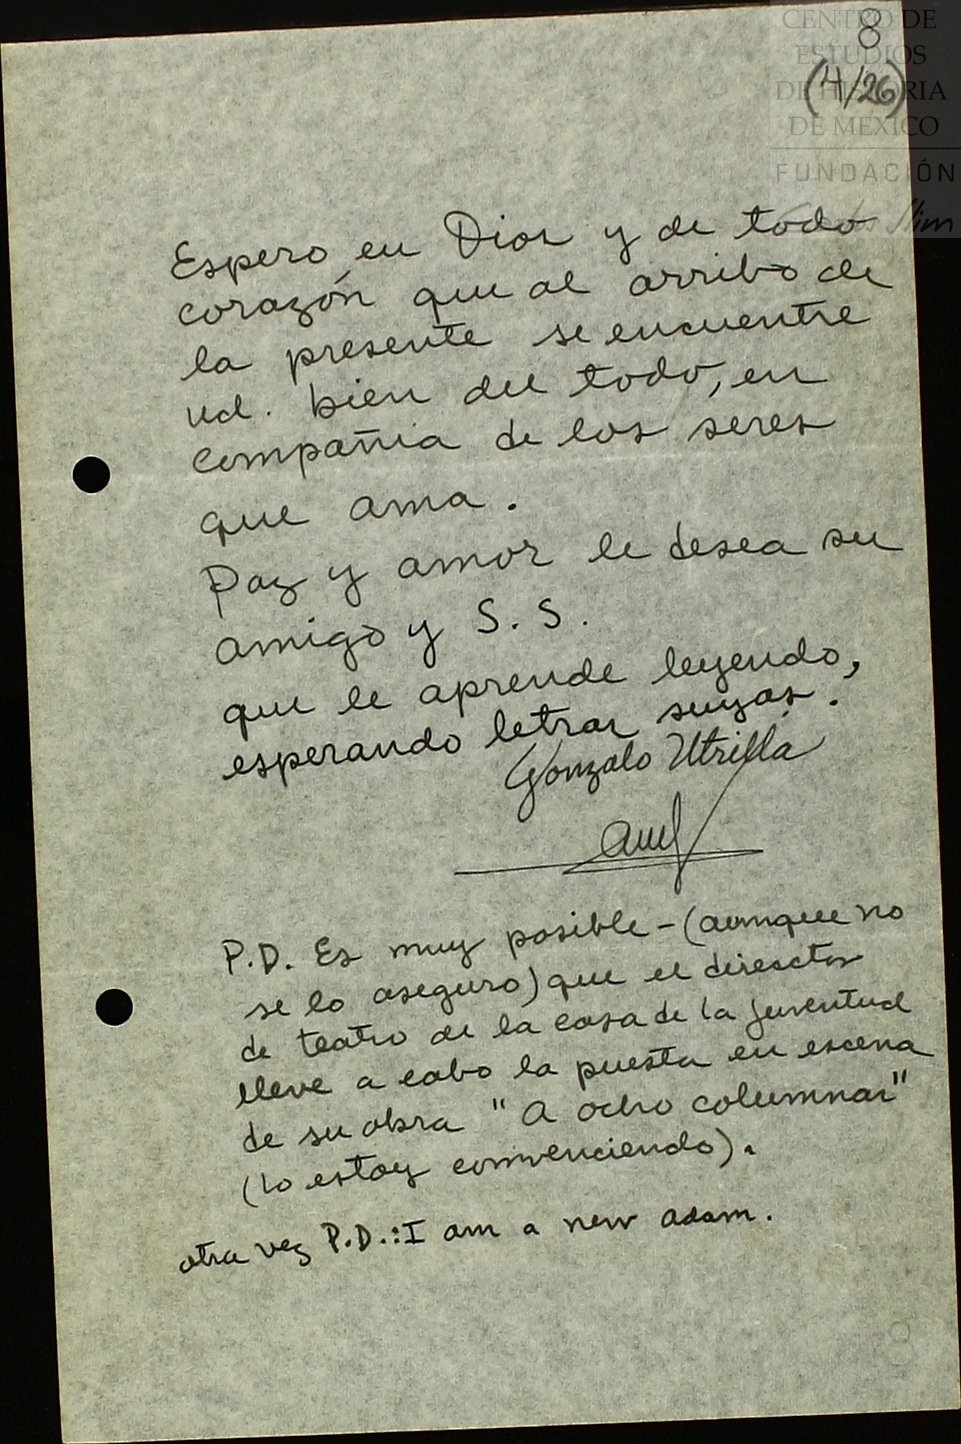 CENTRO DE
ESTUDIOS
DE HISTORIA
DE MÉXICO
FUNDACIÓN
Carlos Slim
8
(4/26)
Espero en Dios y de todo
corazón que al arribo de
la presente se encuentre
ud. bien del todo, en
compañia de los seres
que ama.
Paz y amor le desea su
amigo y S. S.
que le aprende leyendo,
esperando letras suyas.
Gonzalo Utrilla
P.D. Es muy posible - (aunque no
se lo aseguro) que el director
de teatro de la casa de la juventud
lleve a cabo la puesta en escena
de su obra "A ocho columnas"
(lo estoy convenciendo).
otra vez P.D.: I am a new adam.